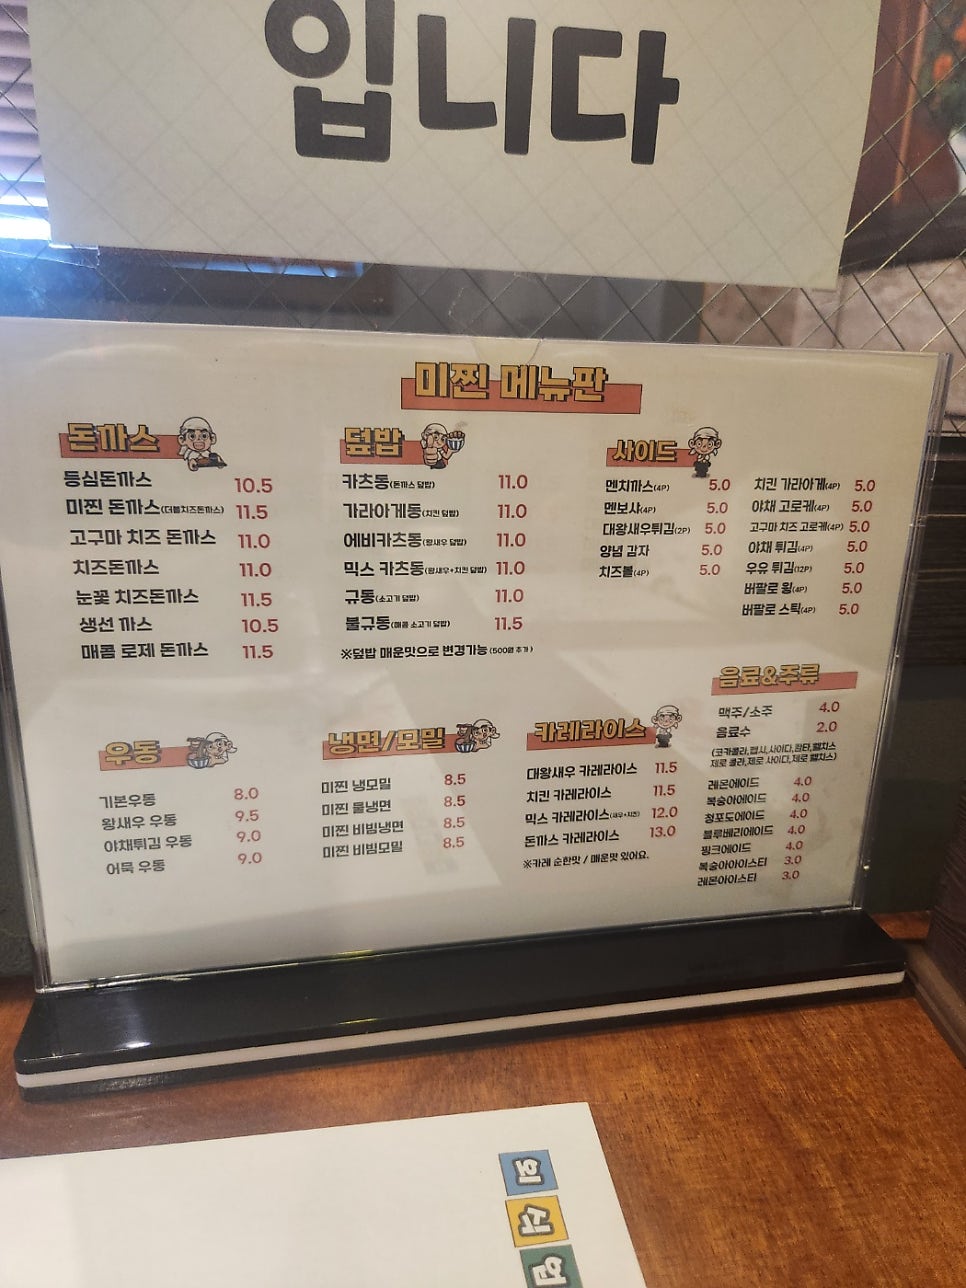 입니다
미찐 메뉴판
돈까스
등심돈까스 10.5
미찐 돈까스(더블치즈돈까스) 11.5
고구마 치즈 돈까스 11.0
치즈돈까스 11.0
눈꽃 치즈돈까스 11.5
생선 까스 10.5
매콤 로제 돈까스 11.5
덮밥
카츠동(돈까스 덮밥) 11.0
가라아게동(치킨 덮밥) 11.0
에비카츠동(왕새우 덮밥) 11.0
믹스 카츠동(왕새우+치킨 덮밥) 11.0
규동(소고기 덮밥) 11.0
불규동(매콤 소고기 덮밥) 11.5
※덮밥 매운맛으로 변경가능 (500원 추가)
사이드
멘치까스(4P) 5.0
멘보샤(4P) 5.0
대왕새우튀김(2P) 5.0
양념 감자 5.0
치즈볼(4P) 5.0
치킨 가라아게(4P) 5.0
야채 고로케(4P) 5.0
고구마 치즈 고로케(4P) 5.0
야채 튀김(4P) 5.0
우유 튀김(12P) 5.0
버팔로 윙(4P) 5.0
버팔로 스틱(4P) 5.0
우동
기본우동 8.0
왕새우 우동 9.5
야채튀김 우동 9.0
어묵 우동 9.0
냉면/모밀
미찐 냉모밀 8.5
미찐 물냉면 8.5
미찐 비빔냉면 8.5
미찐 비빔모밀 8.5
카레라이스
대왕새우 카레라이스 11.5
치킨 카레라이스 11.5
믹스 카레라이스(새우+치킨) 12.0
돈까스 카레라이스 13.0
※카레 순한맛 / 매운맛 있어요.
음료&주류
맥주/소주 4.0
음료수 2.0
(코카콜라,펩시,사이다,환타,웰치스
제로 콜라,제로 사이다,제로 웰치스)
레몬에이드 4.0
복숭아에이드 4.0
청포도에이드 4.0
블루베리에이드 4.0
핑크에이드 4.0
복숭아아이스티 3.0
레몬아이스티 3.0